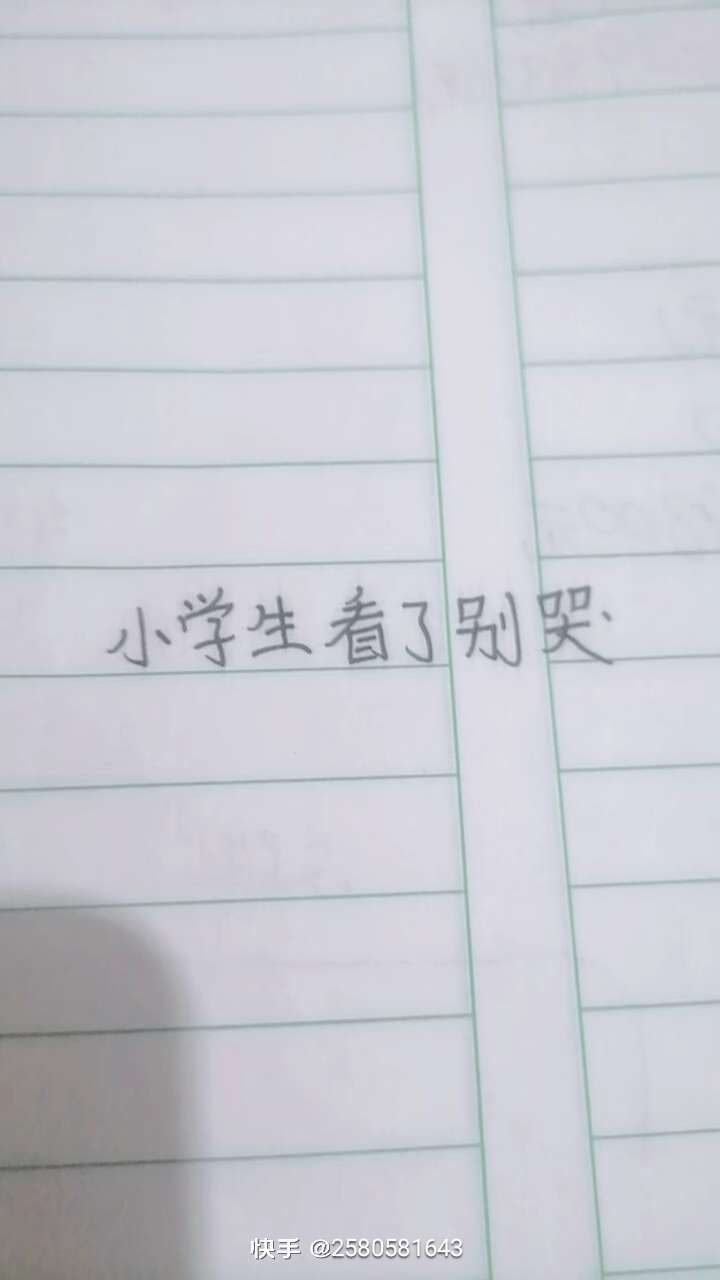 小学生看了别哭
快手 @2580581643